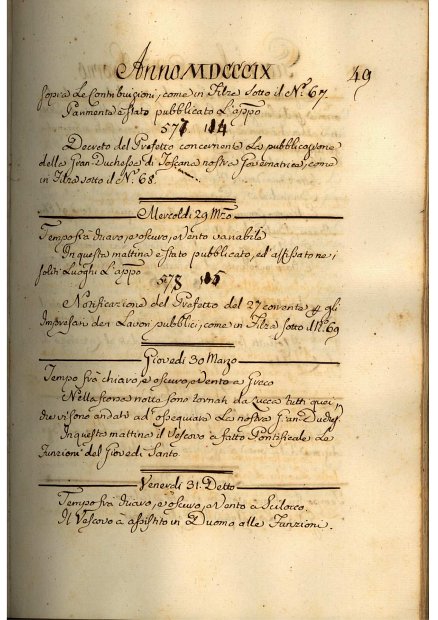 Anno MDCCCIX 49
sopra Le Contribuzioni, come in Filza sotto il N.º 67.
Parimente è stato pubblicato L'app.o
577 114
Decreto del Prefetto concernente La pubblicazione
della Gran-Duchessa di Toscana nostra Governatrice, come
in Filza sotto il N.º 68.
Mercoldi 29 Mzo.
Tempo frà chiaro, e oscuro, e Vento variabile
In questa mattina è stato pubblicato, ed affissato ne i
soliti Luoghi L'app.o
578 115
Notificazione del Prefetto del 27 corrente gli
Impresarj dei Lavori pubblici, come in Filza sotto il N.º 69
Giovedi 30 Marzo
Tempo frà chiaro, e oscuro, e Vento a Greco
Nella scorsa notte sono tornati da Lucca tutti quei
che vi sono andati ad ossequiare La nostra Gran-Duchess.
In questa mattina il Vescovo à fatto Pontificale Le
Funzioni del Giovedi Santo.
Venerdi 31. Detto
Tempo frà chiaro, e oscuro, e Vento a Scilocco.
Il Vescovo à assistito in Duomo alle Funzioni.